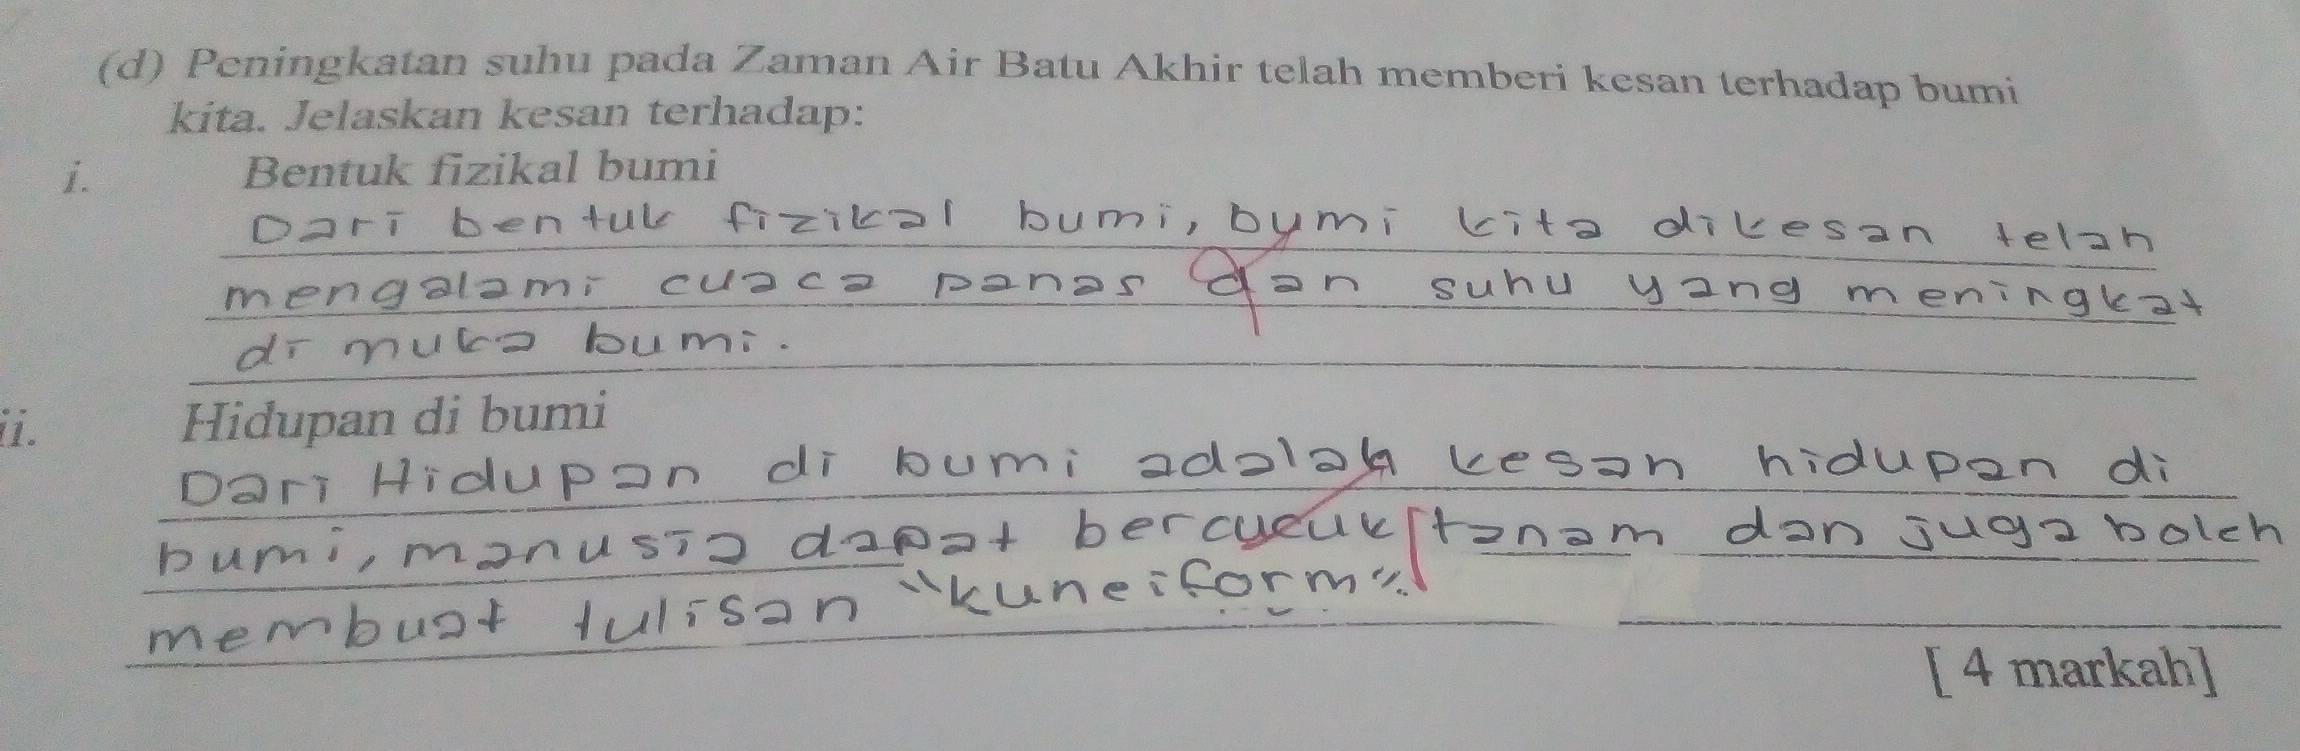 (d) Peningkatan suhu pada Zaman Air Batu Akhir telah memberi kesan terhadap bumi
kita. Jelaskan kesan terhadap:
i. Bentuk fizikal bumi
Dari bentuk fizikal bumi, bumi kita dikesan telah
mengalami cuaca panas dan suhu yang meningkat
di muka bumi.
ii. Hidupan di bumi
Dari Hidupan di bumi adalah kesan hidupan di
bumi, manusia dapat bercucuk tanam dan juga boleh
membuat tulisan "kuneiform".
[ 4 markah]